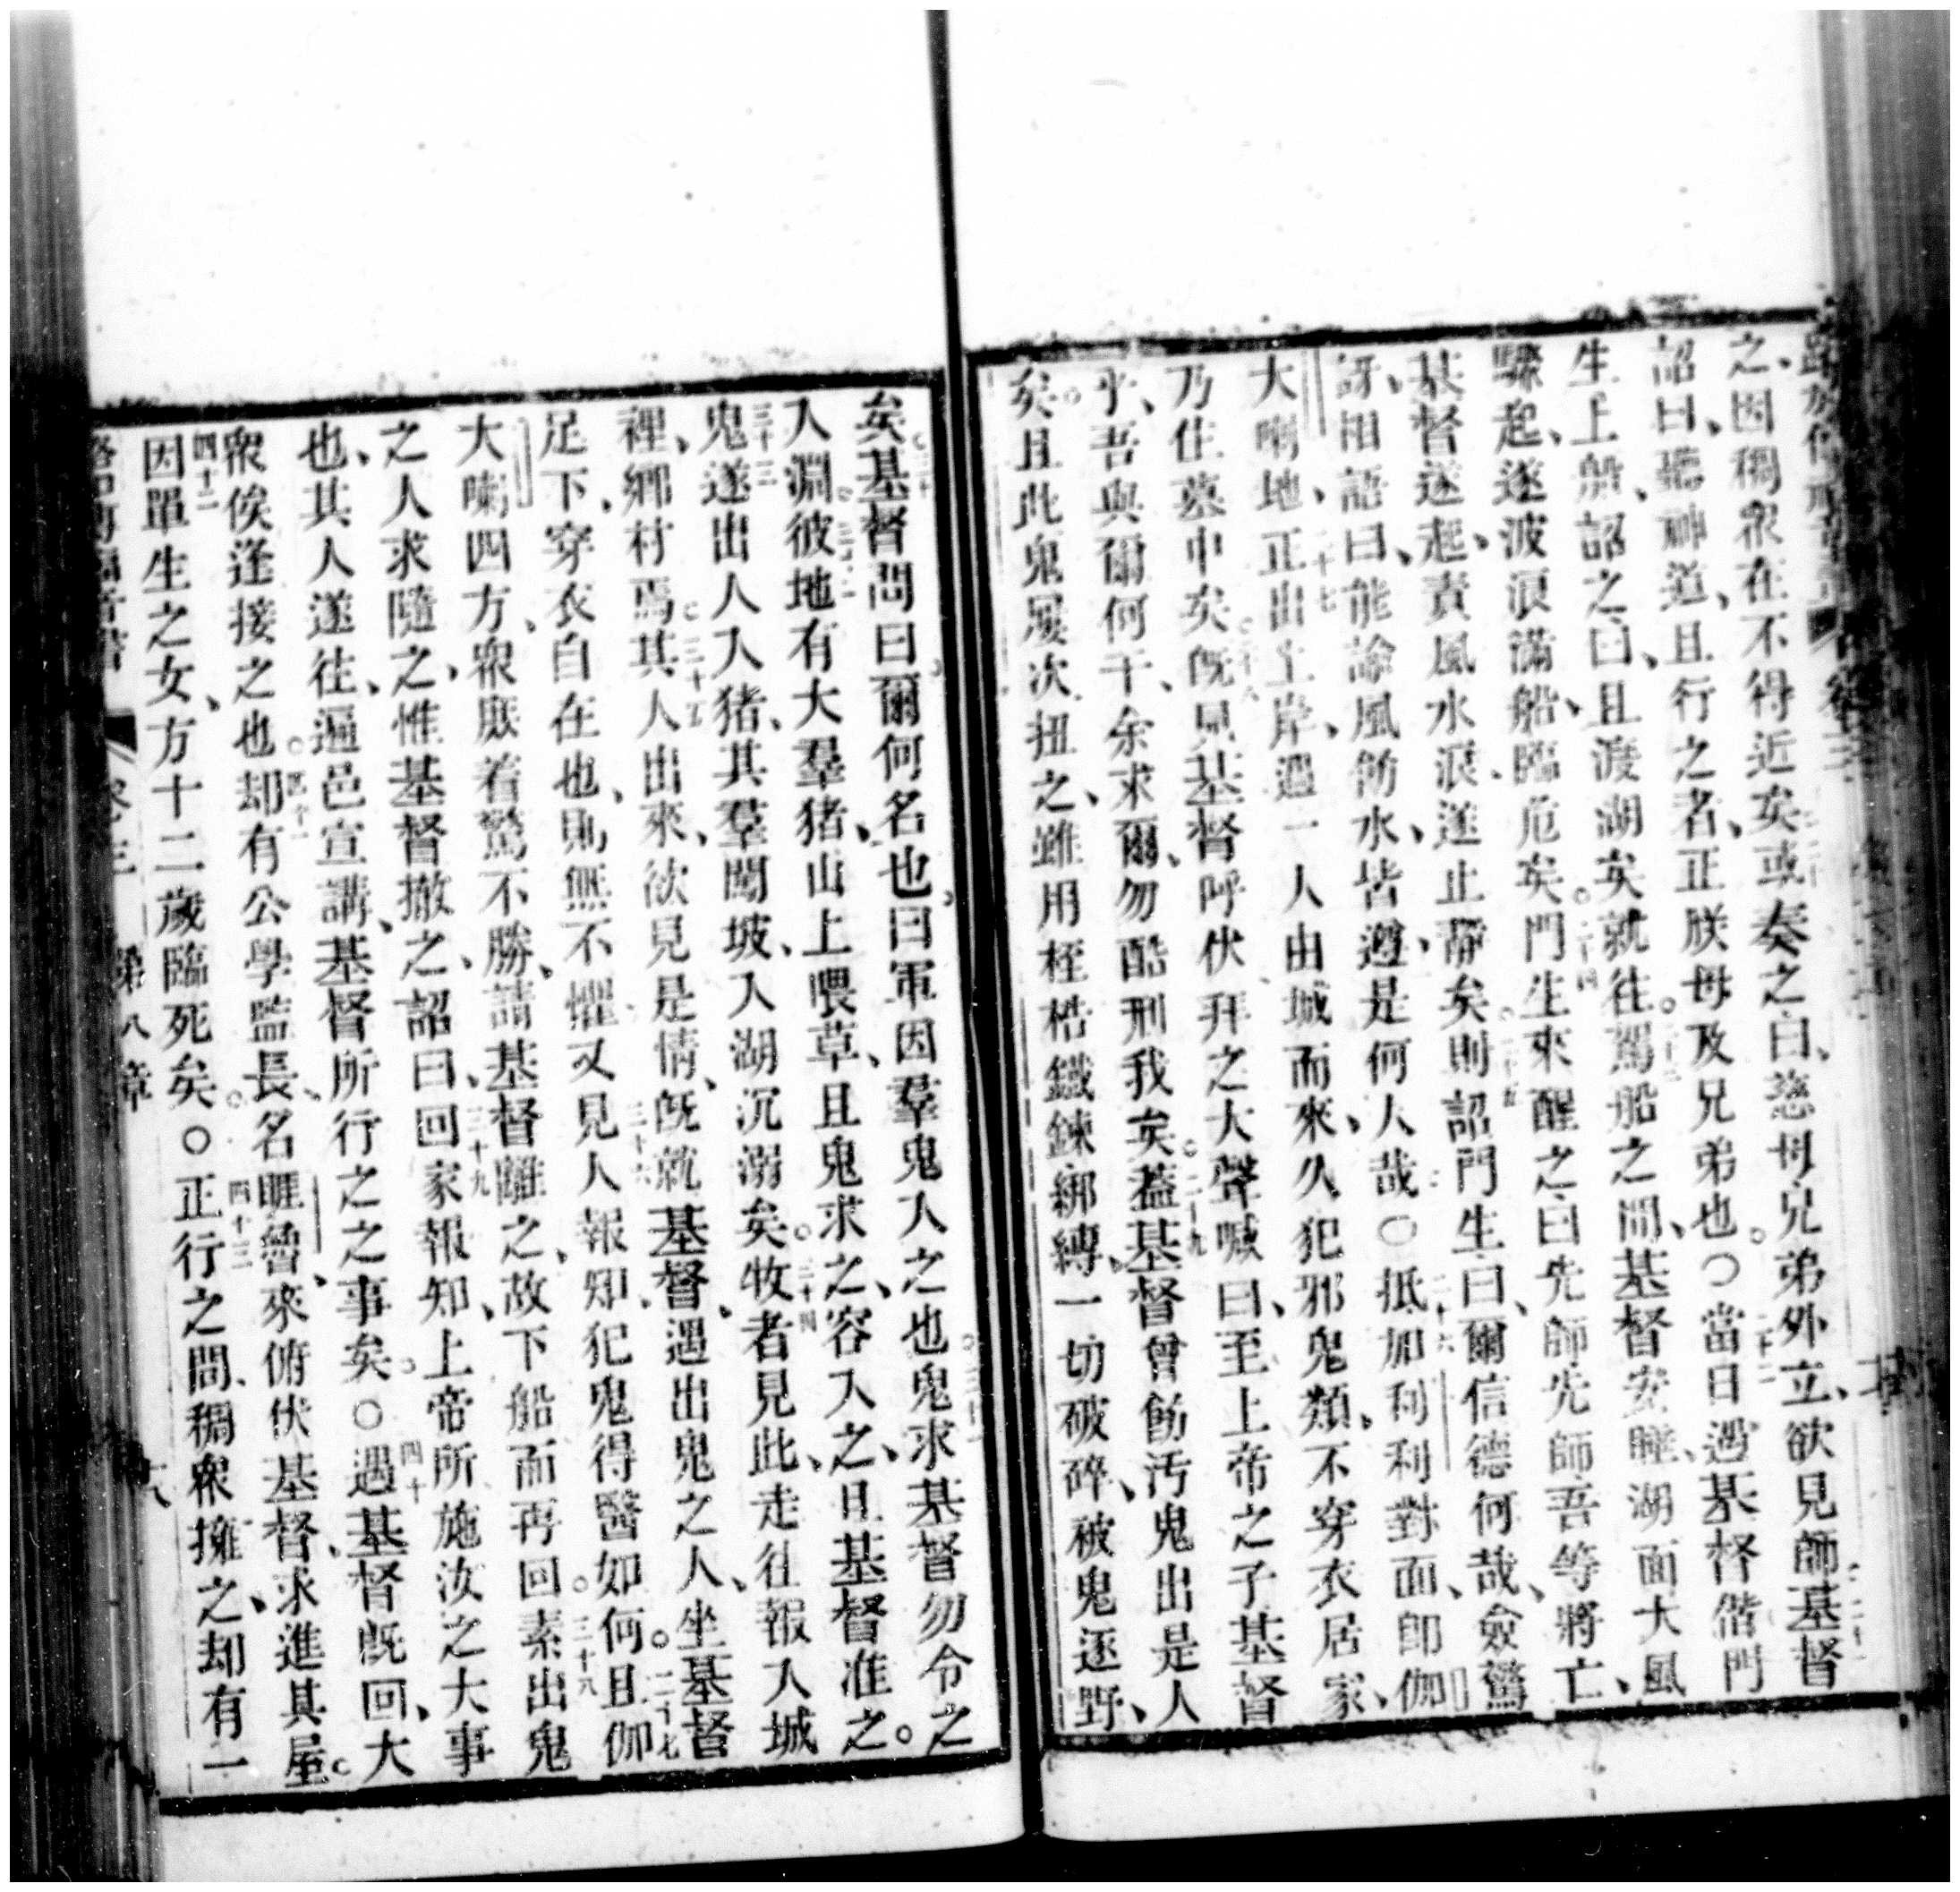 之、因稠衆在不得近矣或奏之曰、慈母兄弟外立、欲見師基督
詔曰、聽神道、且行之者、正朕母及兄弟也。〇當日遇基督偕門
生上船、詔之曰、且渡湖矣就往。駕船之間、基督安睡、湖面大風
驟起、遂波浪滿船、臨危矣。門生來醒之曰先師先師吾等將亡、
基督遂起、責風水浪遂止靜矣。則詔門生曰、爾信德何哉、僉驚
訝、相語曰、能諭風飭水、皆遵、是何人哉〇抵加利利對面、卽伽
大喇地、正出上岸、遇一人由城而來、久犯邪鬼類、不穿衣居家、
乃住墓中矣。旣見基督呼伏拜之大聲喊曰、至上帝之子基督
乎、吾與爾何干、余求爾、勿酷刑我矣。蓋基督曾飭汚鬼出是人
矣。且此鬼屢次扭之、雖用桎梏鐵鍊綁縛、一切破碎、被鬼逐野、
矣。基督問曰爾何名也、曰軍因羣鬼入之也。鬼求基督勿令之
入淵。彼地有大羣猪、山上喂草、且鬼求之、容入之、且基督准之。
鬼遂出人入猪、其羣闖坡、入湖沉溺矣。牧者見此、走往報入城
裡、鄉村焉。其人出來、欲見是情、旣就基督、遇出鬼之人、坐基督
足下、穿衣自在也、則無不懼又見人報知、犯鬼得醫如何。且伽
大喇四方、衆厥着驚不勝、請基督離之、故下船而再回。素出鬼
之人求隨之、惟基督撤之、詔曰、回家報知、上帝所施汝之大事
也、其人遂往、遍邑宣講、基督所行之之事矣。〇遇基督旣回、大
衆俟逢接之也。却有公學監長、名睚魯、來俯伏基督、求進其屋。
因單生之女、方十二歲臨死矣。〇正行之間、稠衆擁之、却有一
第八章